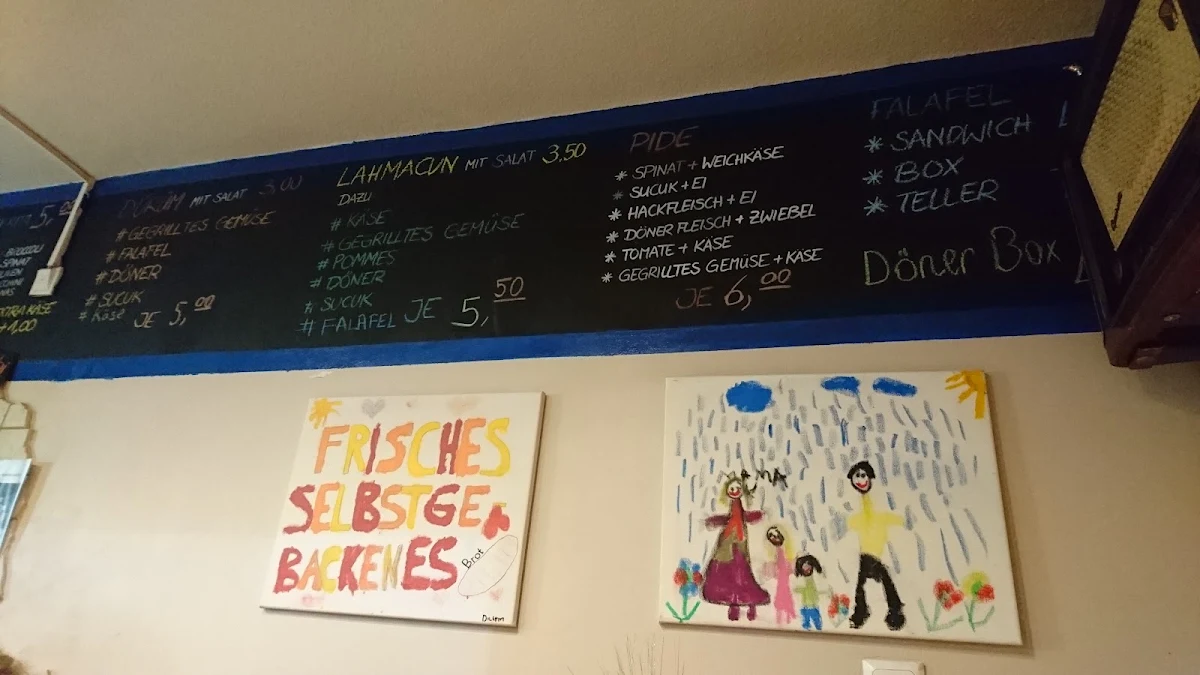 5,00
BROCCOLI
SPINAT
EXTRA KÄSE
+1,00
DÜRÜM MIT SALAT 3,00
# GEGRILLTES GEMÜSE
# FALAFEL
# DÖNER
# SUCUK
# Käse
JE 5,00
LAHMACUN MIT SALAT 3,50
DAZU
# KÄSE
# GEGRILLTES GEMÜSE
# POMMES
# DÖNER
# SUCUK
# FALAFEL JE 5,50
PIDE
* SPINAT + WEICHKÄSE
* SUCUK + EI
* HACKFLEISCH + EI
* DÖNER FLEISCH + ZWIEBEL
* TOMATE + KÄSE
* GEGRILLTES GEMÜSE + KÄSE
JE 6,00
FALAFEL
* SANDWICH
* BOX
* TELLER
Döner Box
FRISCHES
SELBSTGE-
BACKENES
Brot
MAMA